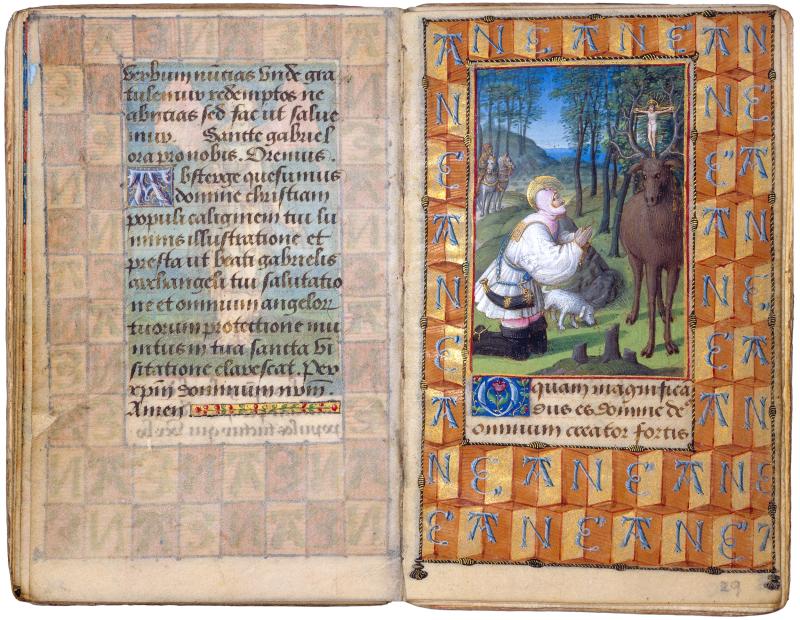 verbum nūcias vnde gra
tulemur redemptos ne
abycias sed fac ut salue
mur. Sancte gabriel
ora pro nobis. Oremus.
Absterge quesumus
domine christiam
populi caliginem tui lu
minis illustratione et
presta ut beati gabrielis
archangeli tui salutatio
ne et omnium angelor
tuorum protectione mu
nitus in tua sancta vi
sitatione clarescat. Per
xpm̄ dominum nrm̄
Amen
A N E A N E A N
N E
E E A
A N
N E
E A
A N
N E A N E A N E
E A N E A N E
O quam magnifica
dus es domine de
omnium creator fortis
29